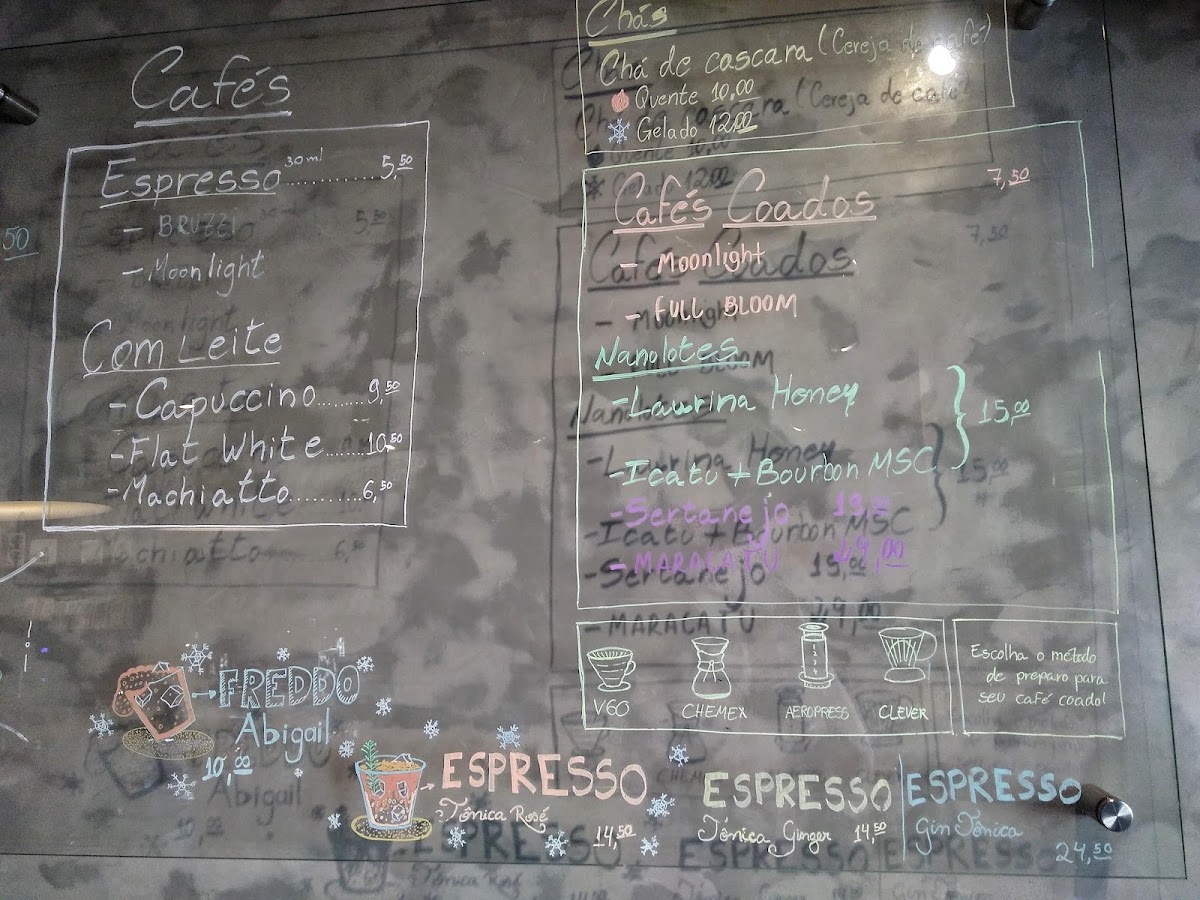 Cafés
Espresso 30ml .......... 5,50
- BRUZZI
- Moonlight
Com Leite
- Capuccino........9,50
- Flat White.......10,50
- Machiatto..........6,50
50
Chás
Chá de cascara (Cereja de café)
Quente 10,00
Gelado 12,00
Cafés Coados 7,50
- Moonlight
- FULL BLOOM
Nanolotes
- Laurina Honey
- Icatu + Bourbon MSC } 15,00
- Sertanejo
- MARACATU
V60 CHEMEX AEROPRESS CLEVER
Escolha o método
de preparo para
seu café coado!
FREDDO
Abigail
10,00
ESPRESSO
Tônica Rosé
14,50
ESPRESSO
Tônica Ginger 14,50
ESPRESSO
Gin Tônica
24,50